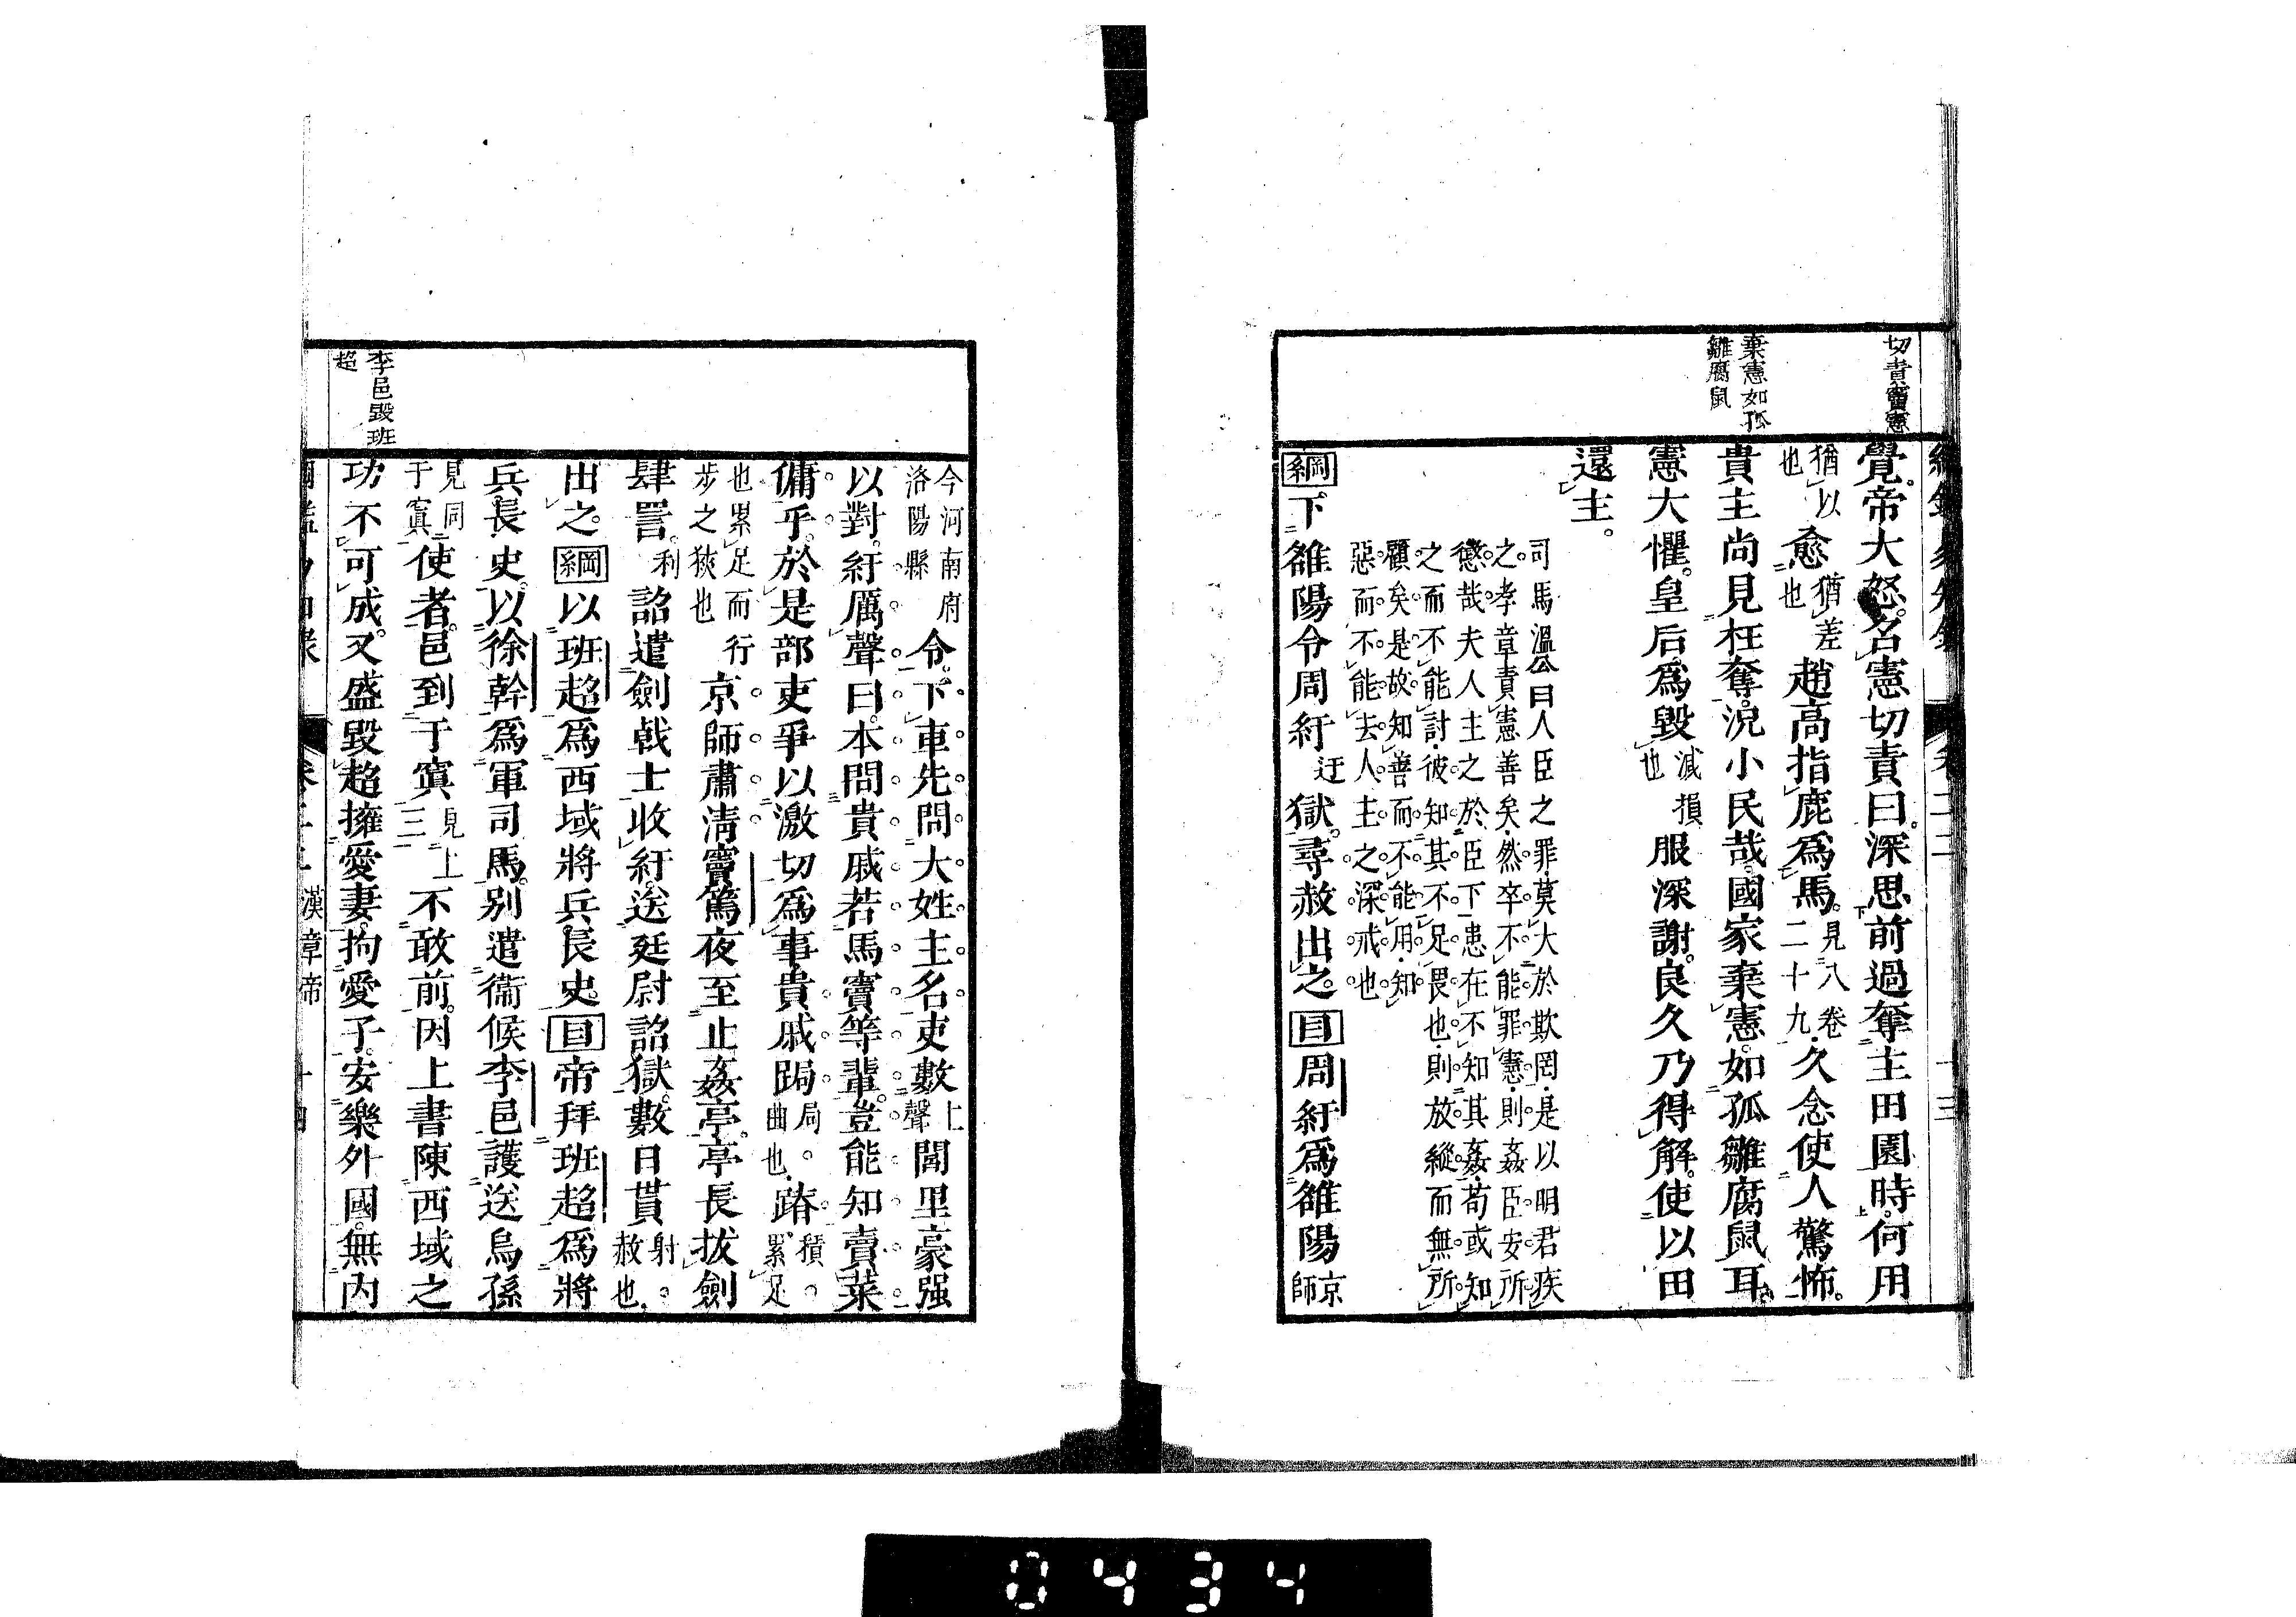 切責竇憲
覺帝大怒召憲切責曰深思前過奪主田園時何用
猶以
也
愈
猶差
也
趙高指鹿爲馬
見八卷
二十九
久念使人驚怖
棄憲如孤
雛腐鼠
貴主尚見枉奪況小民哉國家棄憲如孤雛腐鼠耳
憲大懼皇后爲毀
減損
也
服深謝良久乃得解使以田
還主
司馬溫公曰人臣之罪莫大於欺罔是以明君疾
之孝章責憲善矣然卒不能罪憲則姦臣安所
懲哉夫人主之於臣下患在不知其姦苟或知
之而不能討彼知其不足畏也則放縱而無所
顧矣是故知善而不能用知
惡而不能去人主之深戒也
綱下雒陽令周紆
迂
獄尋赦出之目周紆爲雒陽
京
師
今河南府
洛陽縣
令下車先問大姓主名吏數
上
聲
閭里豪强
以對紆厲聲曰本問貴戚若馬竇等輩豈能知賣菜
傭乎於是部吏爭以激切爲事貴戚跼
局
曲也
蹐
積
累足
也累足而行
步之狹也
京師肅清竇篤夜至止姦亭亭長拔劍
肆詈
利
詔遣劍戟士收紆送廷尉詔獄數日貰
射
赦也
出之綱以班超爲西域將兵長史目帝拜班超爲將
兵長史以徐幹爲軍司馬別遣衞候李邑護送烏孫
見同
于窴
使者邑到于窴
見上
三
不敢前因上書陳西域之
李邑毀班
超
功不可成又盛毀超擁愛妻拘愛子安樂外國無內
漢章帝
0434